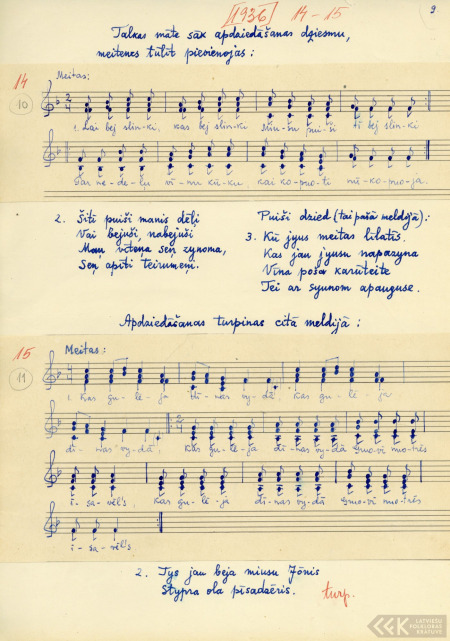 [1936] 14-15
9
Talkas māte sāk apdziedāšanas dziesmu,
meitenes tūlīt pievienojas:
14
Meitas:
10
1. Lai bej slin-ki, kas bej slin-ku Miu-su pui-ši tī bej slin-ki
Par ne-de-ļu vī-nu kū-ku, kai ko-puo-ti nū-ko-puo-ja.
2. Šiti puiši manis dēļi
Vai bejuši, nabejuši
Puiši dzied (tai pašā meldijā):
3. Kū jyus meitas līlatīs.
Kas jau jyusu napazyna
Vīna poša karūteite
Tei ar syunom apauguse.
Apdziedāšanas turpinas citā meldijā:
15
Meitas:
11
1. Kas gu-lē-ja dī-nas vy-dā, Kas gu-lē-ja
dī-nas vy-dā, Kas gu-lē-ja dī-nas vy-dā Guo-vī muo-trēs
ī-sa-vēl's, Kas gu-lē-ja dī-nas vy-dā Guo-vī muo-trēs
ī-sa-vēl's
2. Tys jau beja miusu Jōnis
Stypra ola pīsadzēris.
turp.
LATVIEŠU
FOLKLORAS
KRĀTUVE